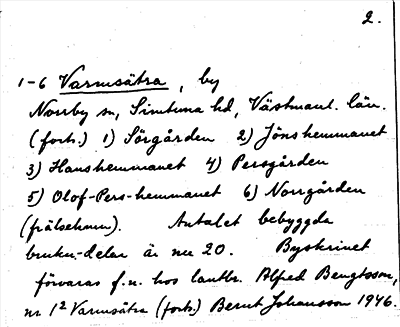 2.
1-6 Varmsätra, by
Norrby sn, Simtuna hd, Västmanl. län.
(forts.) 1) Sörgården 2) Jönshemmanet
3) Hanshemmanet 4) Persgården
5) Olof-Pers-hemmanet 6) Norrgården
(frälsehmn). Antalet bebyggda
brukn.-delar är nu 20. Byskrinet
förvaras f.n. hos lantbr. Alfred Bengtsson,
nr 1² Varmsätra (forts.) Bernt Johansson 1946.